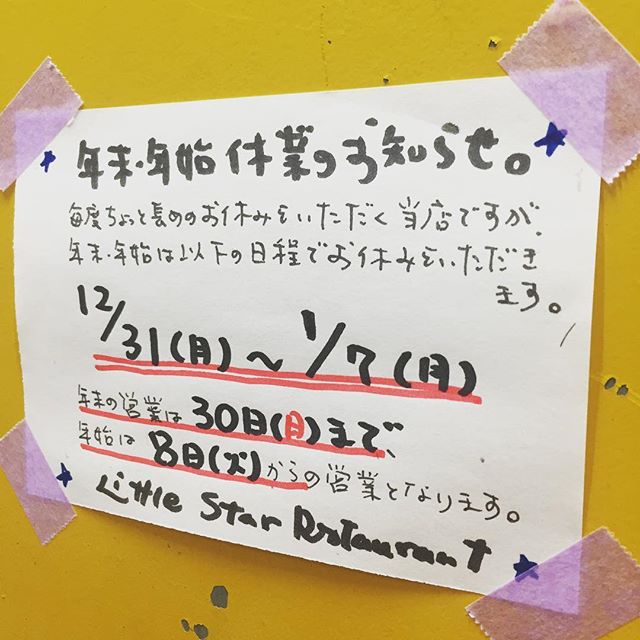 年末・年始休業のお知らせ。
毎度ちょっと長めのお休みをいただく当店ですが、
年末・年始は以下の日程でお休みをいただき
ます。
12/31(月)〜1/7(月)
年末の営業は30日(日)まで、
年始は8日(火)からの営業となります。
Little Star Restaurant